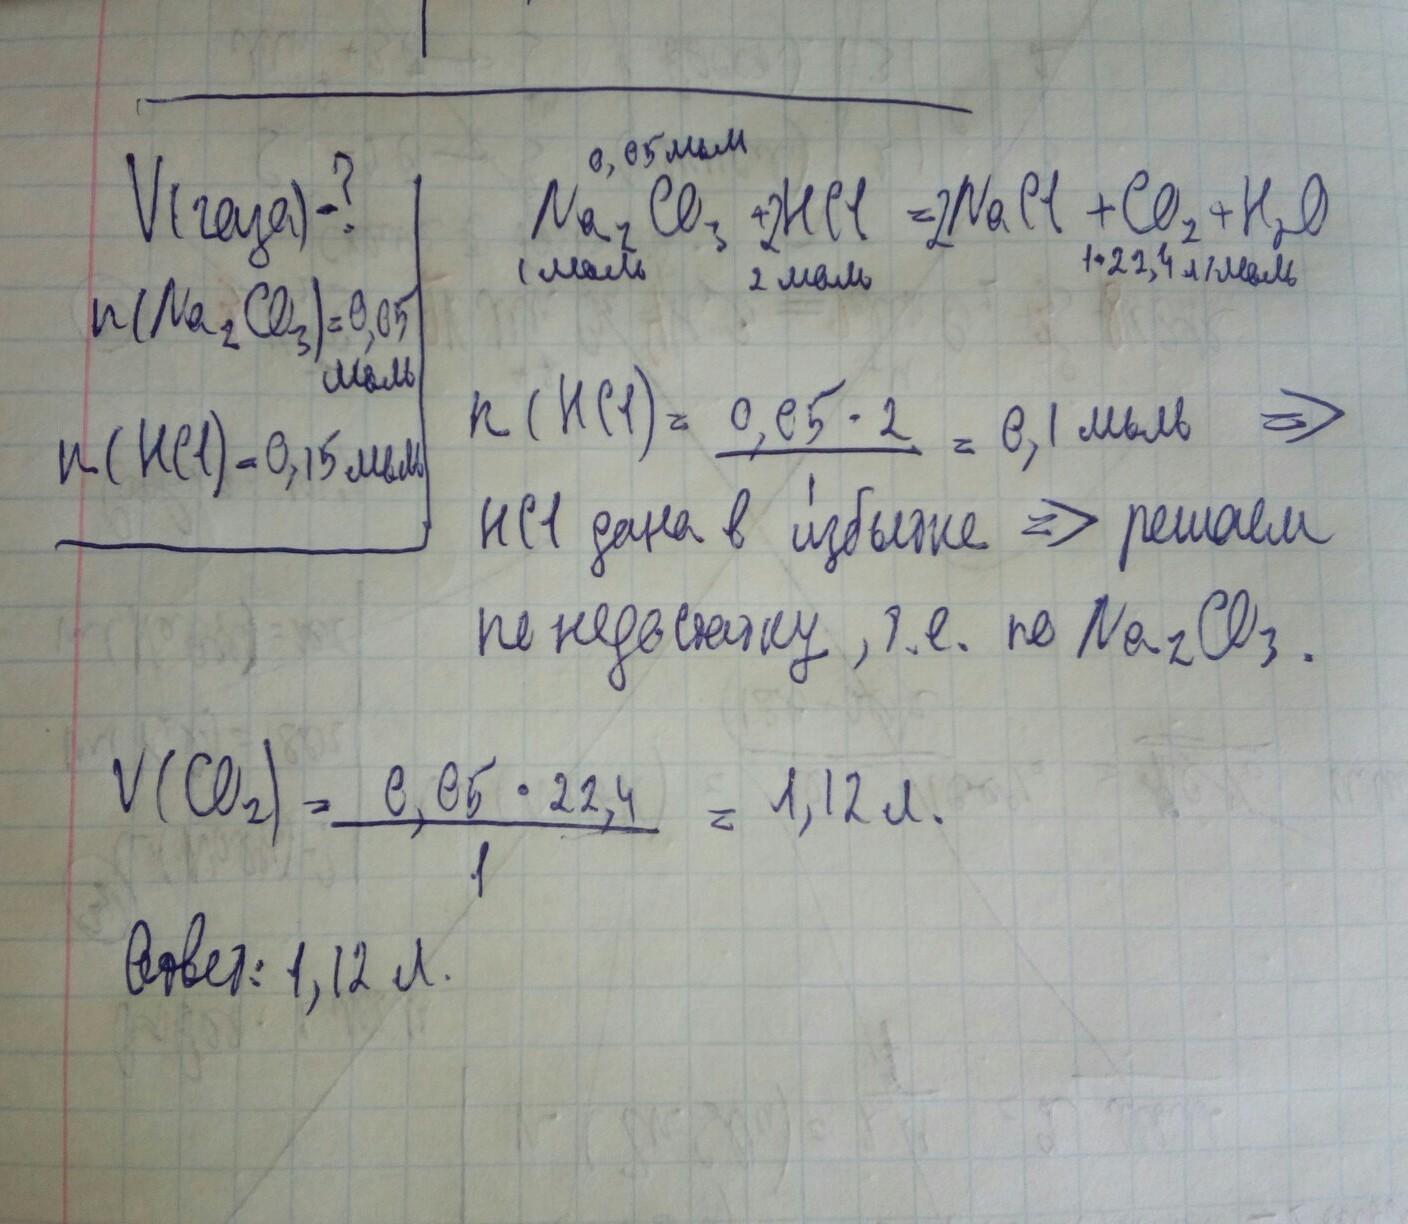 V(газа)-?
n(Na₂CO₃)=0,05
моль
n(HCl)=0,15 моль
0,05 моль
Na₂CO₃ + 2HCl = 2NaCl + CO₂ + H₂O
1 моль 2 моль 1•22,4 л/моль
n(HCl) = 0,05 · 2 / 1 = 0,1 моль ⇒
HCl дана в избытке ⇒ решаем
по недостатку, т.е. по Na₂CO₃.
V(CO₂) = 0,05 · 22,4 / 1 = 1,12 л.
Ответ: 1,12 л.